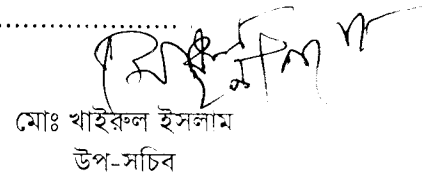 মোঃ খাইরুল ইসলাম
উপ-সচিব